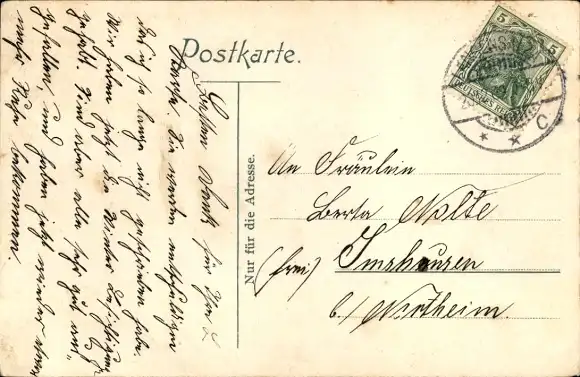 Postkarte.
Nur für die Adresse.
5 5
C
An Fräulein
Berta Nolte
(frei) Imshausen
b./ Northeim.
Besten Dank für Ihre
Karte. Sie werden entschuldigen
daß ich so lange nicht geschrieben habe.
Wir haben jetzt die Winter
gehabt. Sind aber alle sehr gut
gefallen, und haben jetzt wieder etwas
mehr Ruhe bekommen.